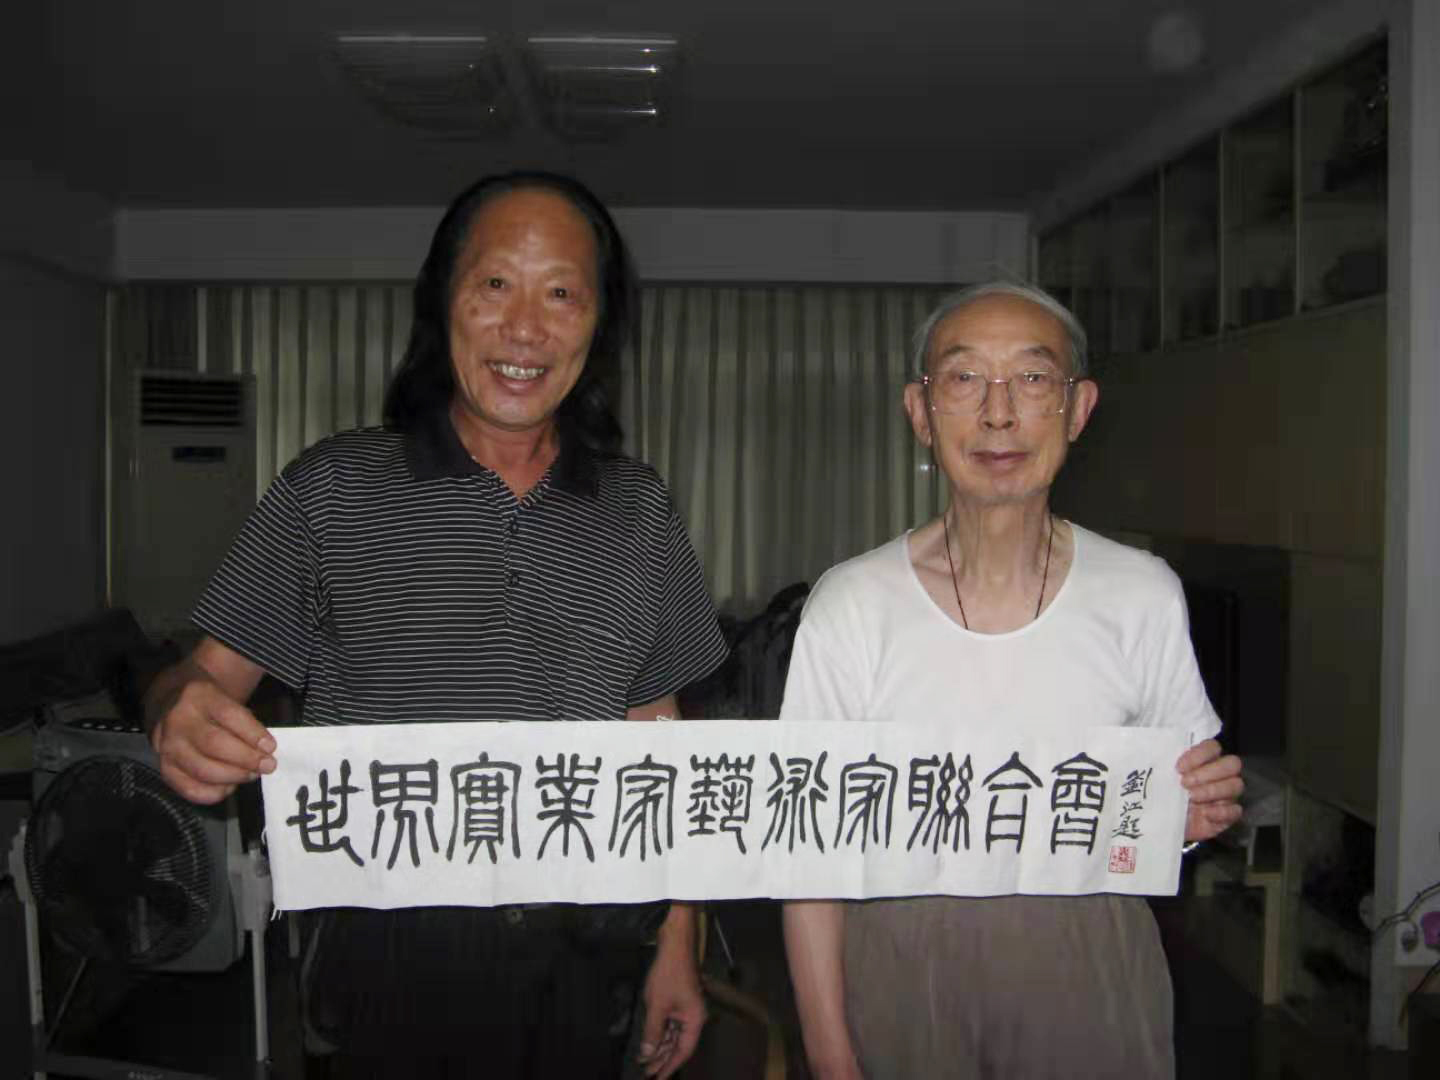 世界實業家藝術家聯合會
劉江題